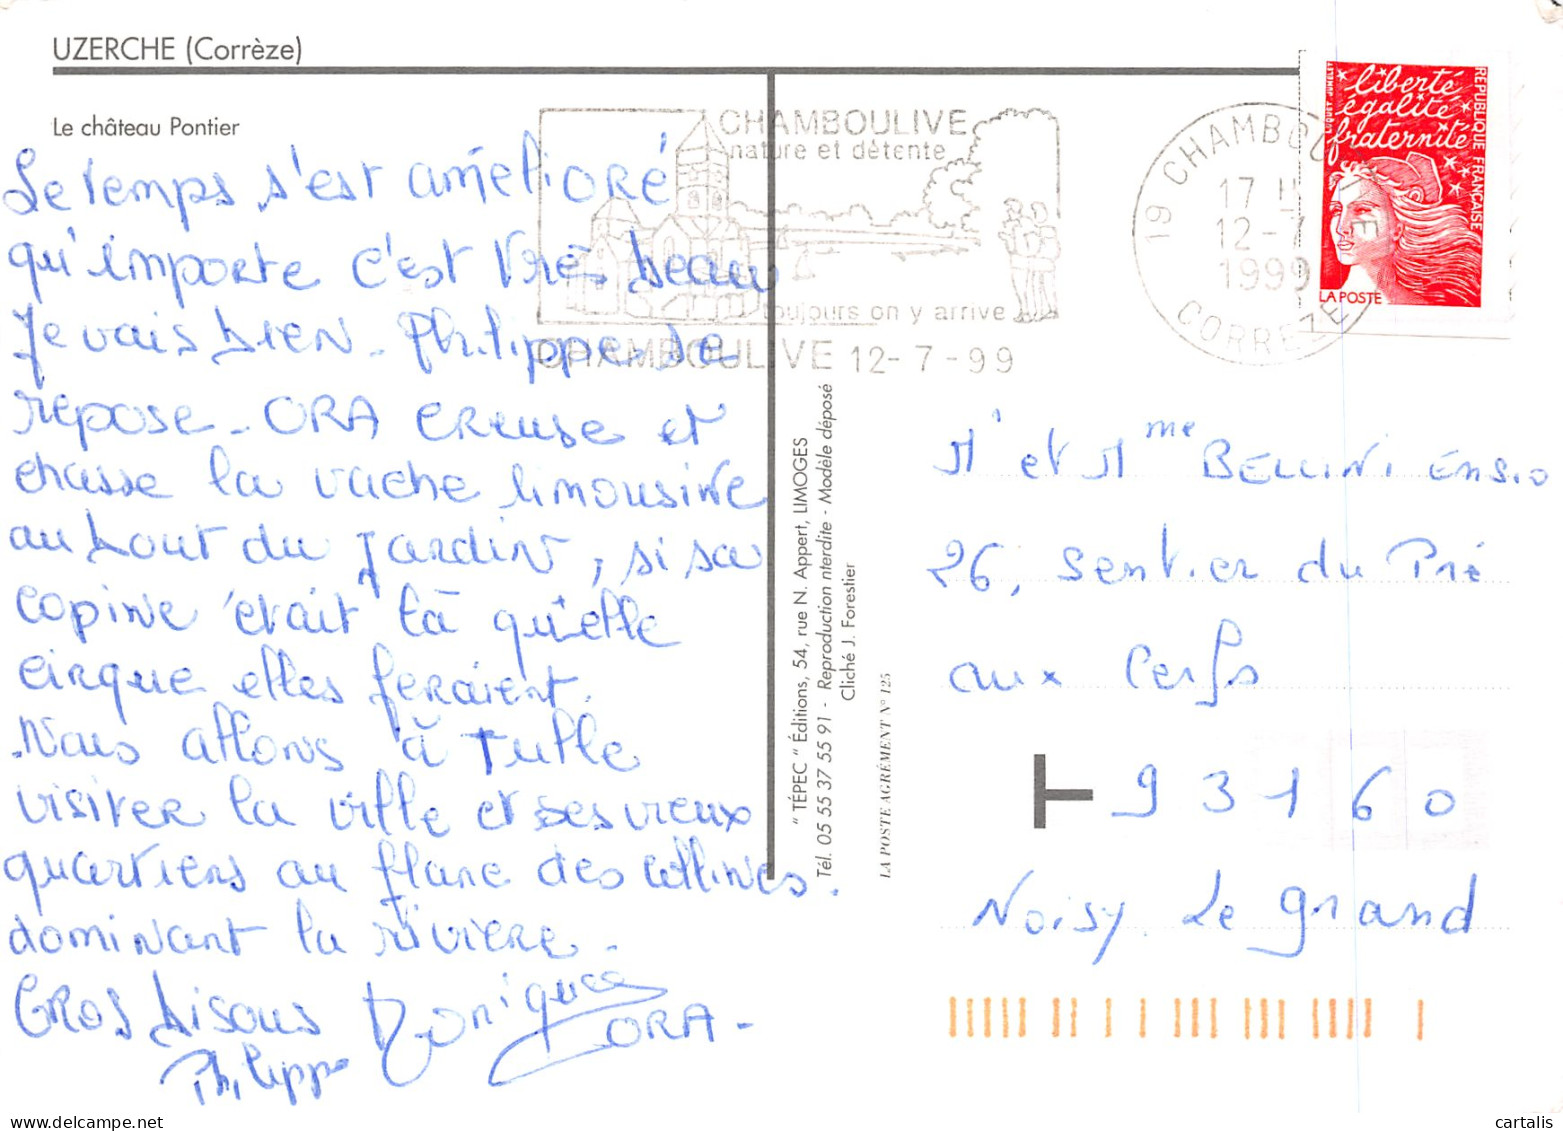 UZERCHE (Corrèze)
Le château Pontier
Le temps s'est amélioré
qu'importe c'est très beau
Je vais bien. Philippe se
repose. ORA creuse et
chasse la vache limousine
au bout du jardin, si sa
copine était là qu'elle
cirque elles feraient.
Nous allons à Tulle
visiter la ville et ses vieux
quartiers au flanc des collines.
dominant la rivière.
Gros bisous
Monique
ORA -
Philippe
CHAMBOULIVE
nature et détente
toujours on y arrive
CHAMBOULIVE 12-7-99
19 CHAMBOU
17 H
12-7
1999
CORREZE
liberté
égalité
fraternité
RÉPUBLIQUE FRANÇAISE
LA POSTE
"TÉPEC" Éditions, 54, rue N. Appert, LIMOGES
Tél. 05 55 37 55 91 - Reproduction nterdite - Modèle déposé
Cliché J. Forestier
LA POSTE AGRÉMENT N° 125
Mr et Mme BELLINI Ensio
26, sentier du Pré
aux Cerfs
T 93160
Noisy. Le grand
cartalis